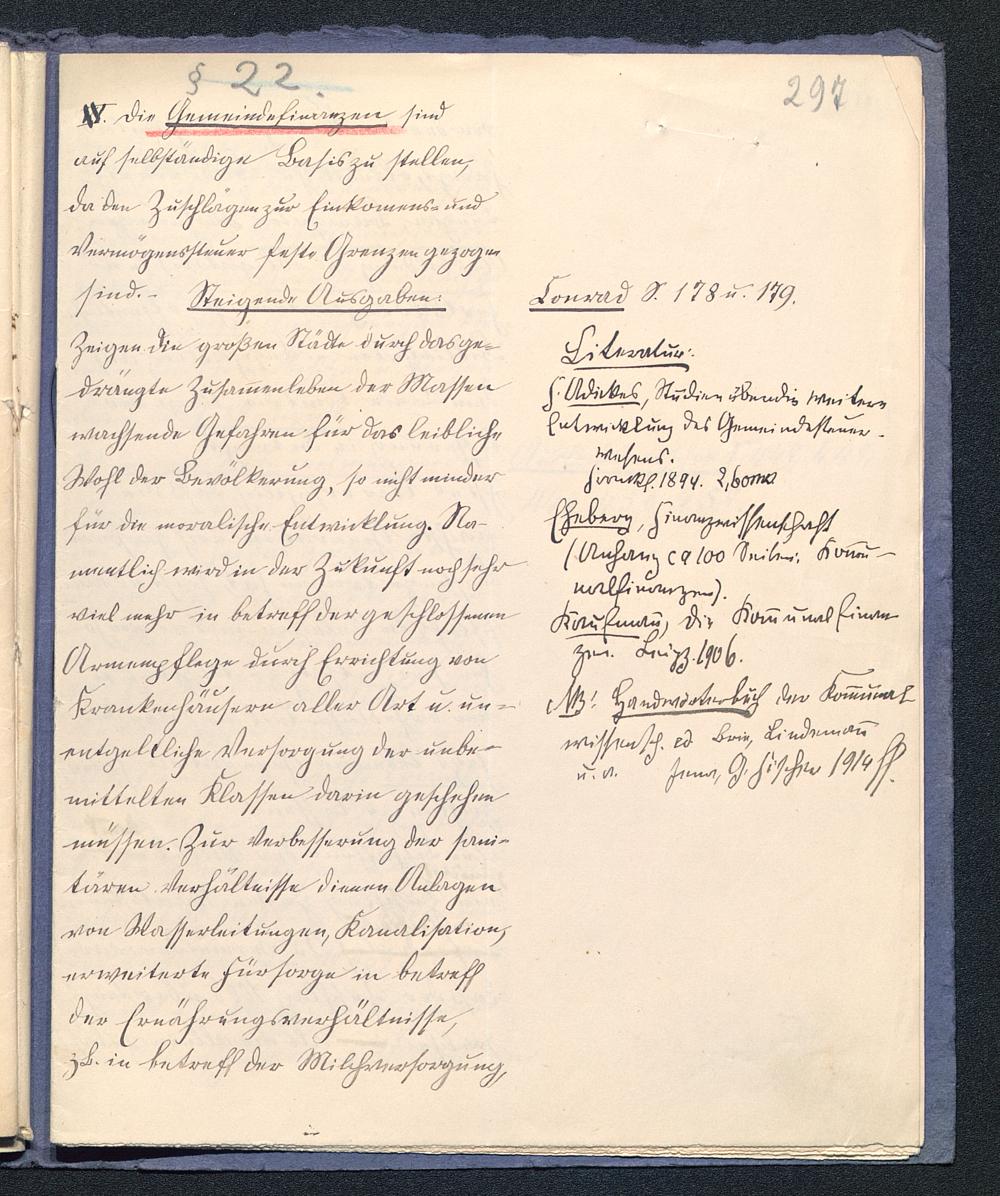 § 22.
297
IV. Die Gemeindefinanzen sind
auf selbständige Basis zu stellen,
da den Zuschlägen zur Einkomens- und
Vermögenssteuer feste Grenzen gezogen
sind. - Steigende Ausgaben:
Zeigen die großen Städte durch das ge-
drängte Zusammenleben der Massen
wachsende Gefahren für das leibliche
Wohl der Bevölkerung, so nicht minder
für die moralische Entwicklung. Na-
mentlich wird in der Zukunft noch sehr
viel mehr in betreff der geschlossenen
Armenpflege durch Errichtung von
Krankenhäusern aller Art u. un-
entgeltliche Versorgung der unbe-
mittelten Klassen darin geschehen
müssen. Zur Verbesserung der sani-
tären Verhältnisse dienen Anlagen
von Wasserleitungen, Kanalisation,
erweiterte Fürsorge in betreff
der Ernährungsverhältnisse,
zB. in betreff der Milchversorgung,
Conrad S. 178 u. 179.
Literatur:
F. Adickes, Studien über die weitere
Entwicklung des Gemeindesteuer-
wesens.
1894. 2,60 M
Eheberg, Finanzwissenschaft
(Anhang ca 100 Seiten: Komu-
nalfinanzen).
Kaufmann, Die Komunalfinan
zen. Leipz. 1906.
NB: Handwörterbuch der Komunal
wissensch. ed Brix, Lindemann
u. a. Jena, G. Fischer 1914 ff.